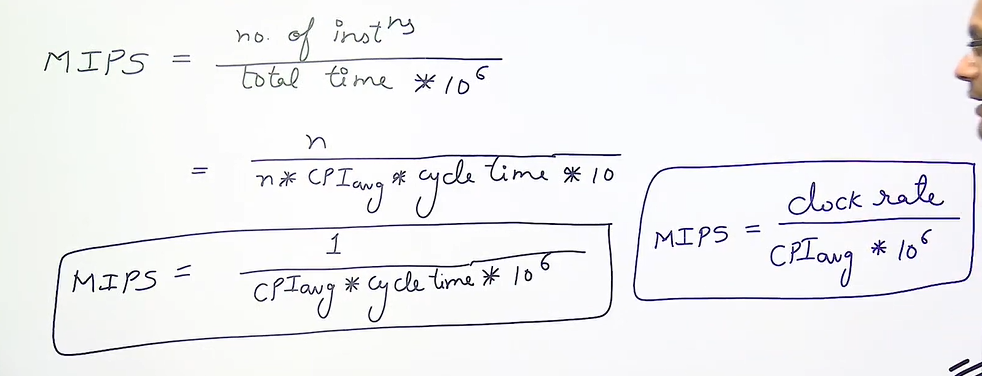 MIPS = no. of instns / total time * 10^6
= n / n * CPIavg * cycle time * 10
MIPS = 1 / CPIavg * cycle time * 10^6
MIPS = clock rate / CPIavg * 10^6